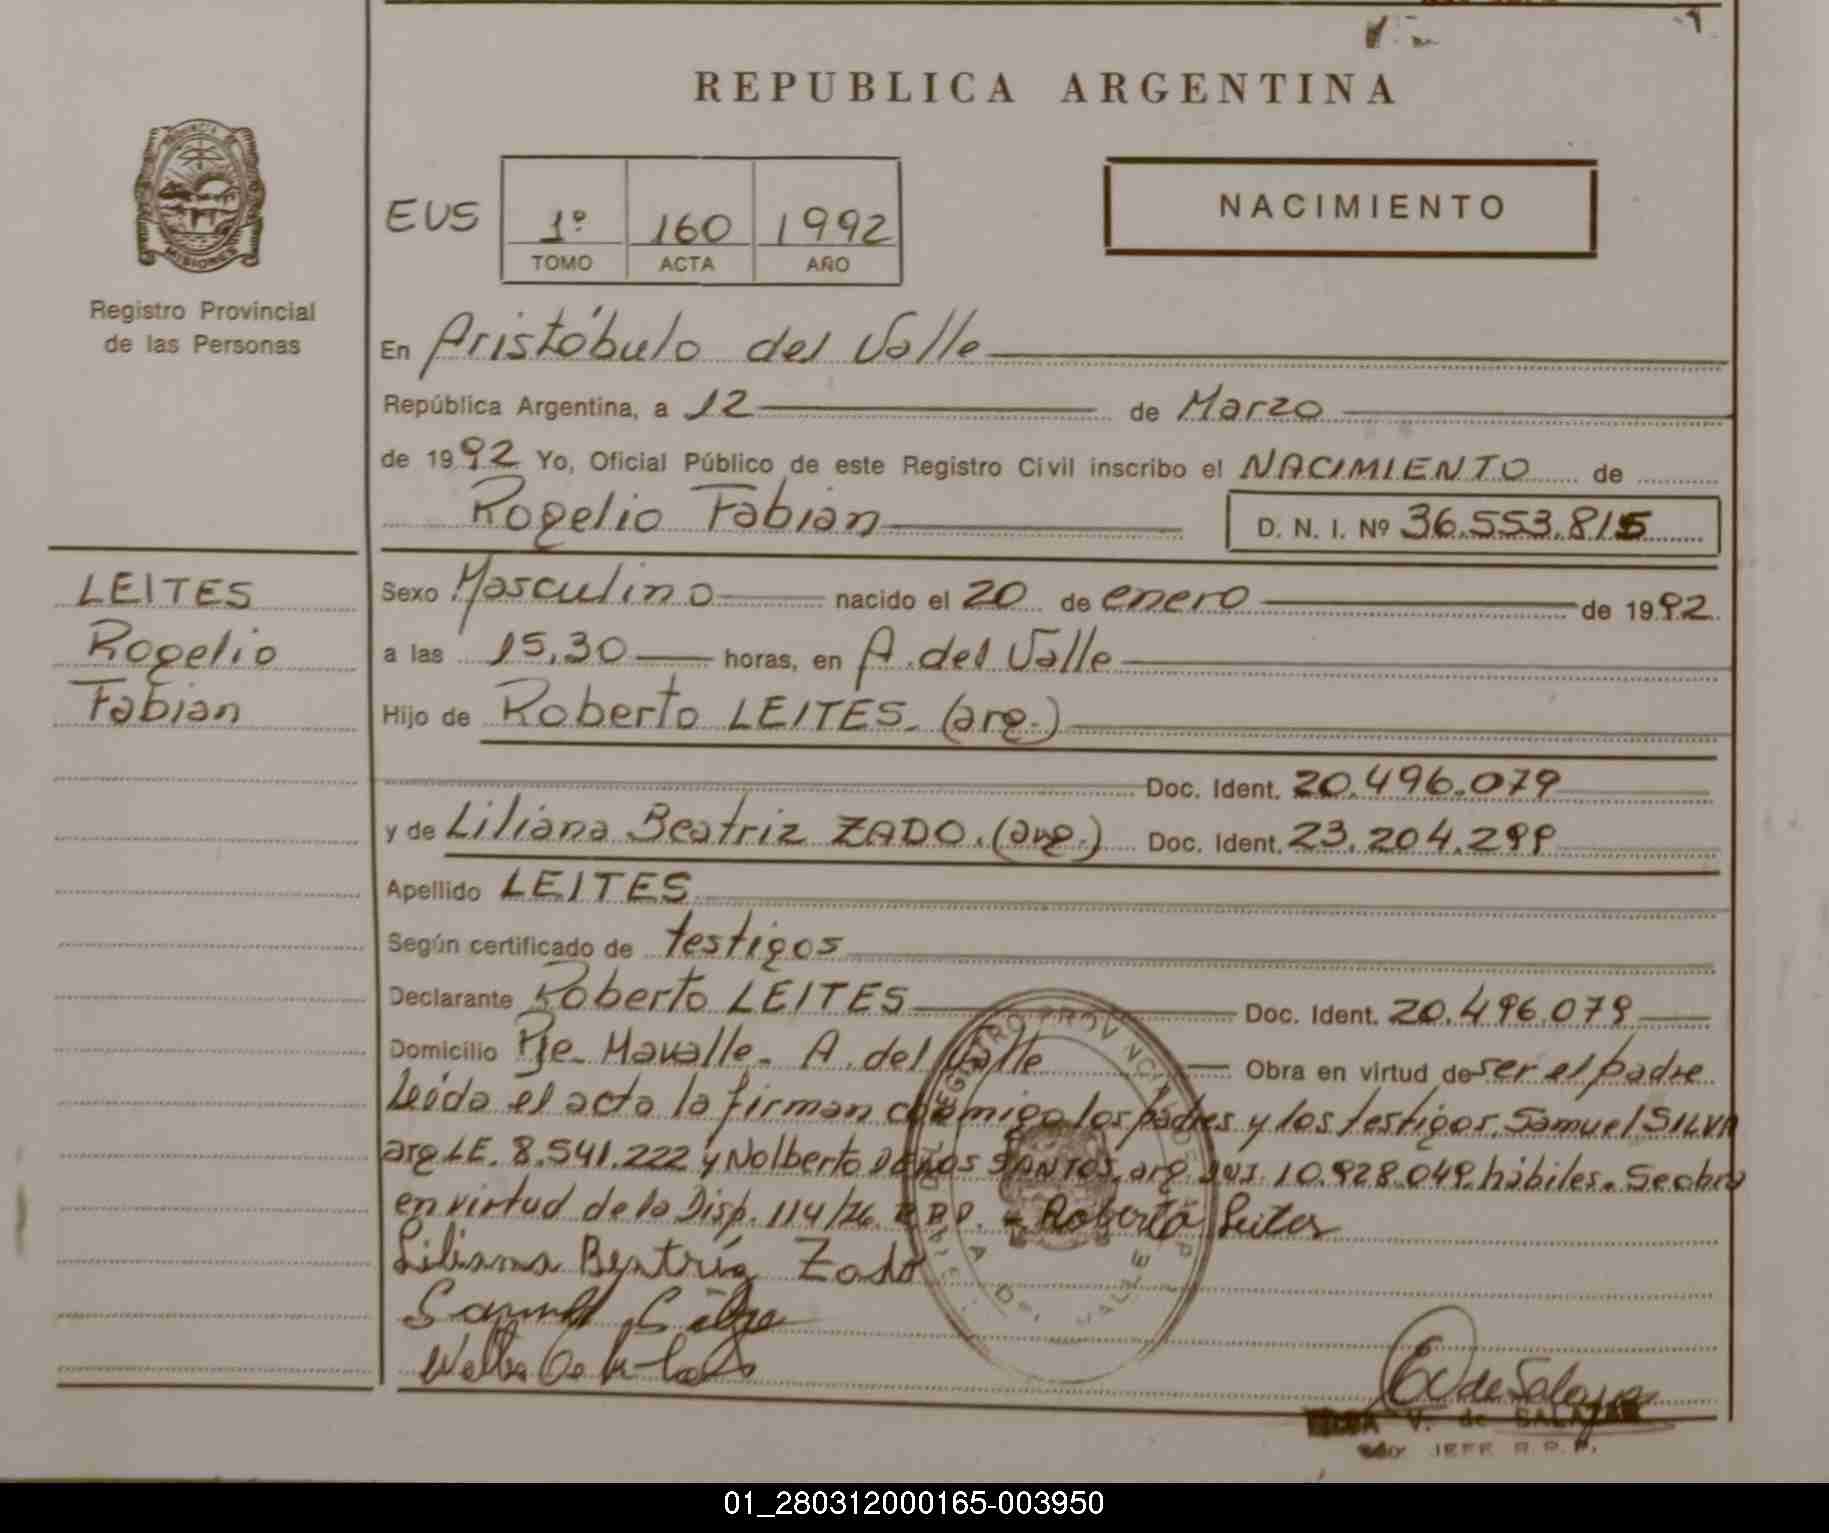 REPUBLICA ARGENTINA
PROVINCIA
MISIONES
Registro Provincial
de las Personas
EUS
1º 160 1992
TOMO ACTA AÑO
NACIMIENTO
En Aristóbulo del Valle
República Argentina, a 12 de Marzo
de 1992 Yo, Oficial Público de este Registro Civil inscribo el NACIMIENTO de
Rogelio Fabian D. N. I. Nº 36.553.815
LEITES
Rogelio
Fabian
Sexo Masculino nacido el 20 de enero de 1992
a las 15,30 horas, en A. del Valle
Hijo de Roberto LEITES. (arg.)
Doc. Ident. 20.496.079
y de Liliana Beatriz ZADO. (arg.) Doc. Ident. 23.204.299
Apellido LEITES
Según certificado de testigos
Declarante Roberto LEITES Doc. Ident. 20.496.079
Domicilio Pje. Mavalle. A. del Valle Obra en virtud de ser el padre
Leída el acta la firman conmigo los padres y los testigos. Samuel SILVA
arg LE. 8.541.222 y Nolberto DE LOS SANTOS. arg. 10.928.049. hábiles. Se obra
en virtud de la Disp. 114/76. Roberto Leites
Liliana Beatriz Zado
Samuel Silva
V. de SALAZAR
JEFE R.P.P.
01_280312000165-003950